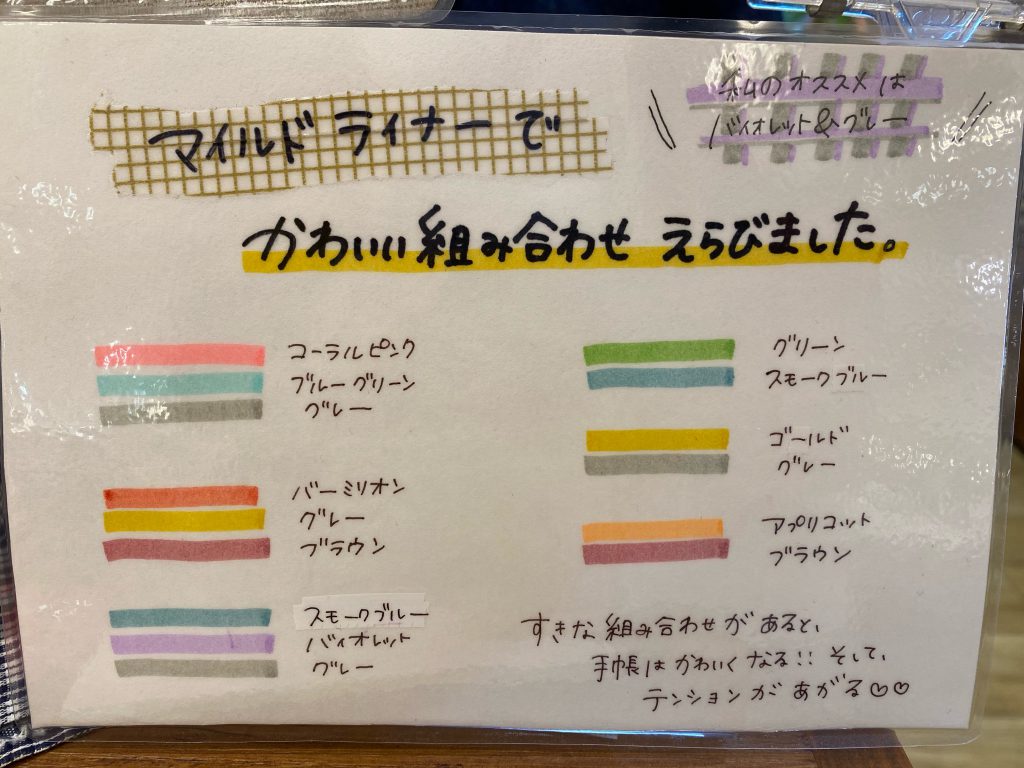 私のオススメは
バイオレット&グレー
マイルドライナーで
かわいい組み合わせ えらびました。
コーラルピンク
ブルーグリーン
グレー
バーミリオン
グレー
ブラウン
スモークブルー
バイオレット
グレー
グリーン
スモークブルー
ゴールド
グレー
アプリコット
ブラウン
すきな組み合わせがあると、
手帳はかわいくなる!! そして、
テンションがあがる♡♡